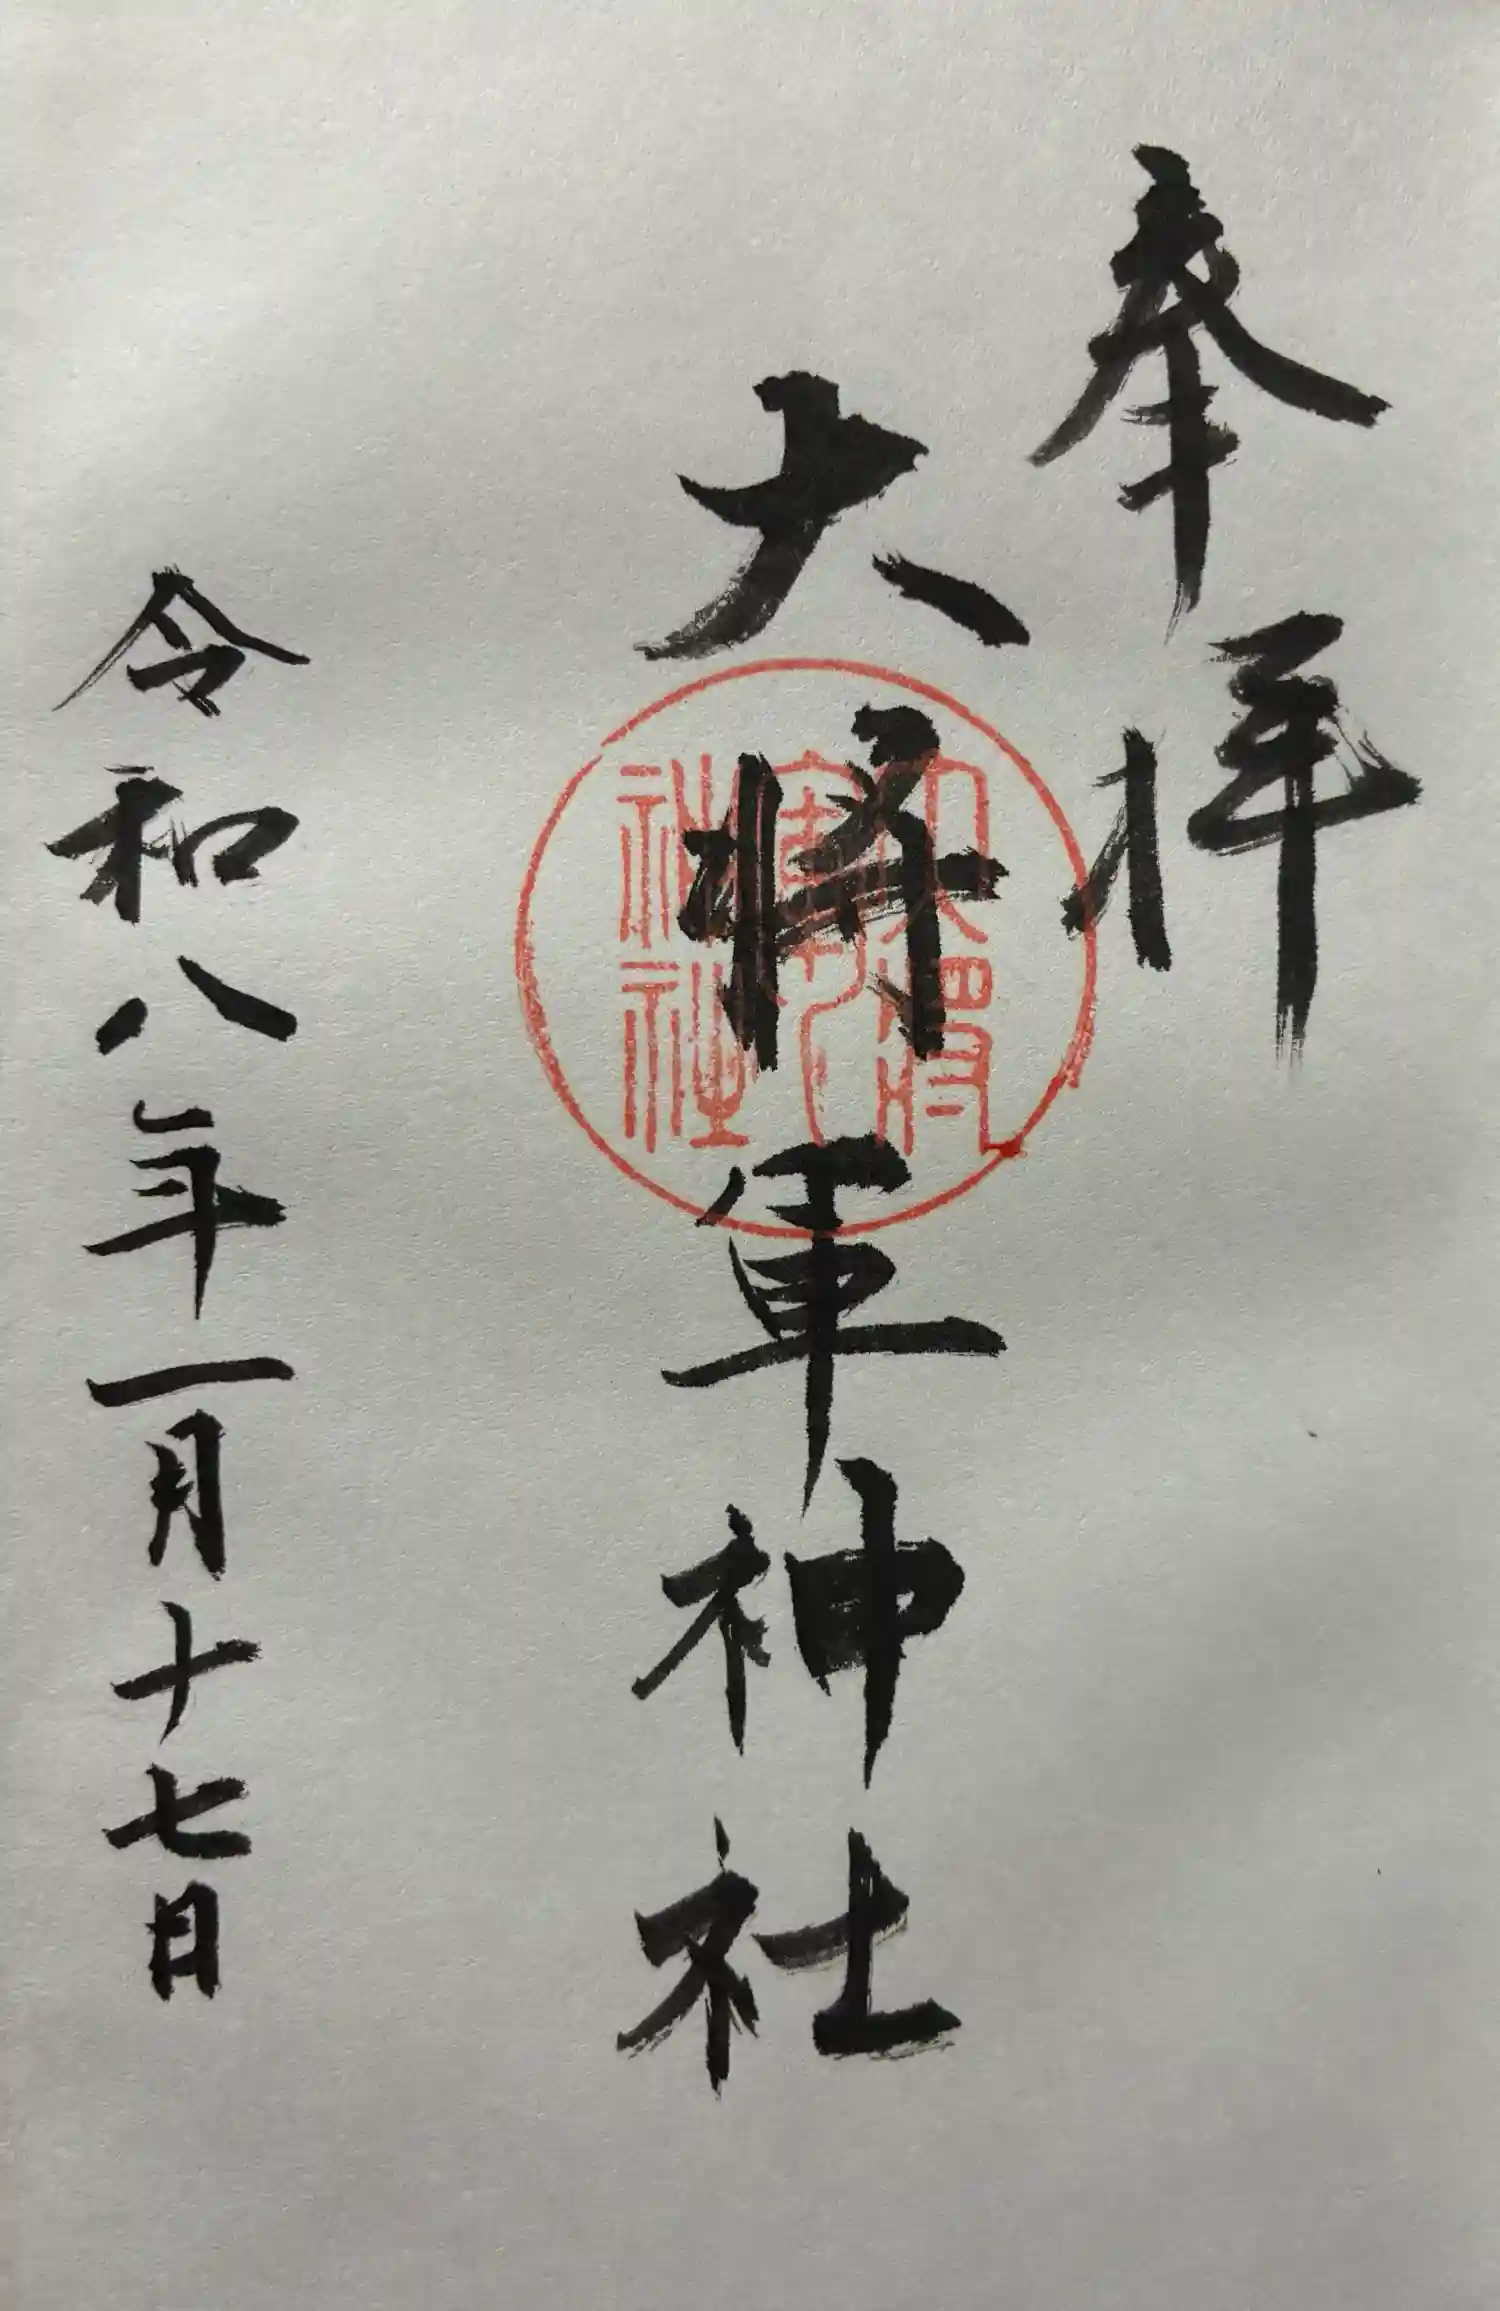 奉拝
大将軍神社
令和八年一月十七日
大将軍神社